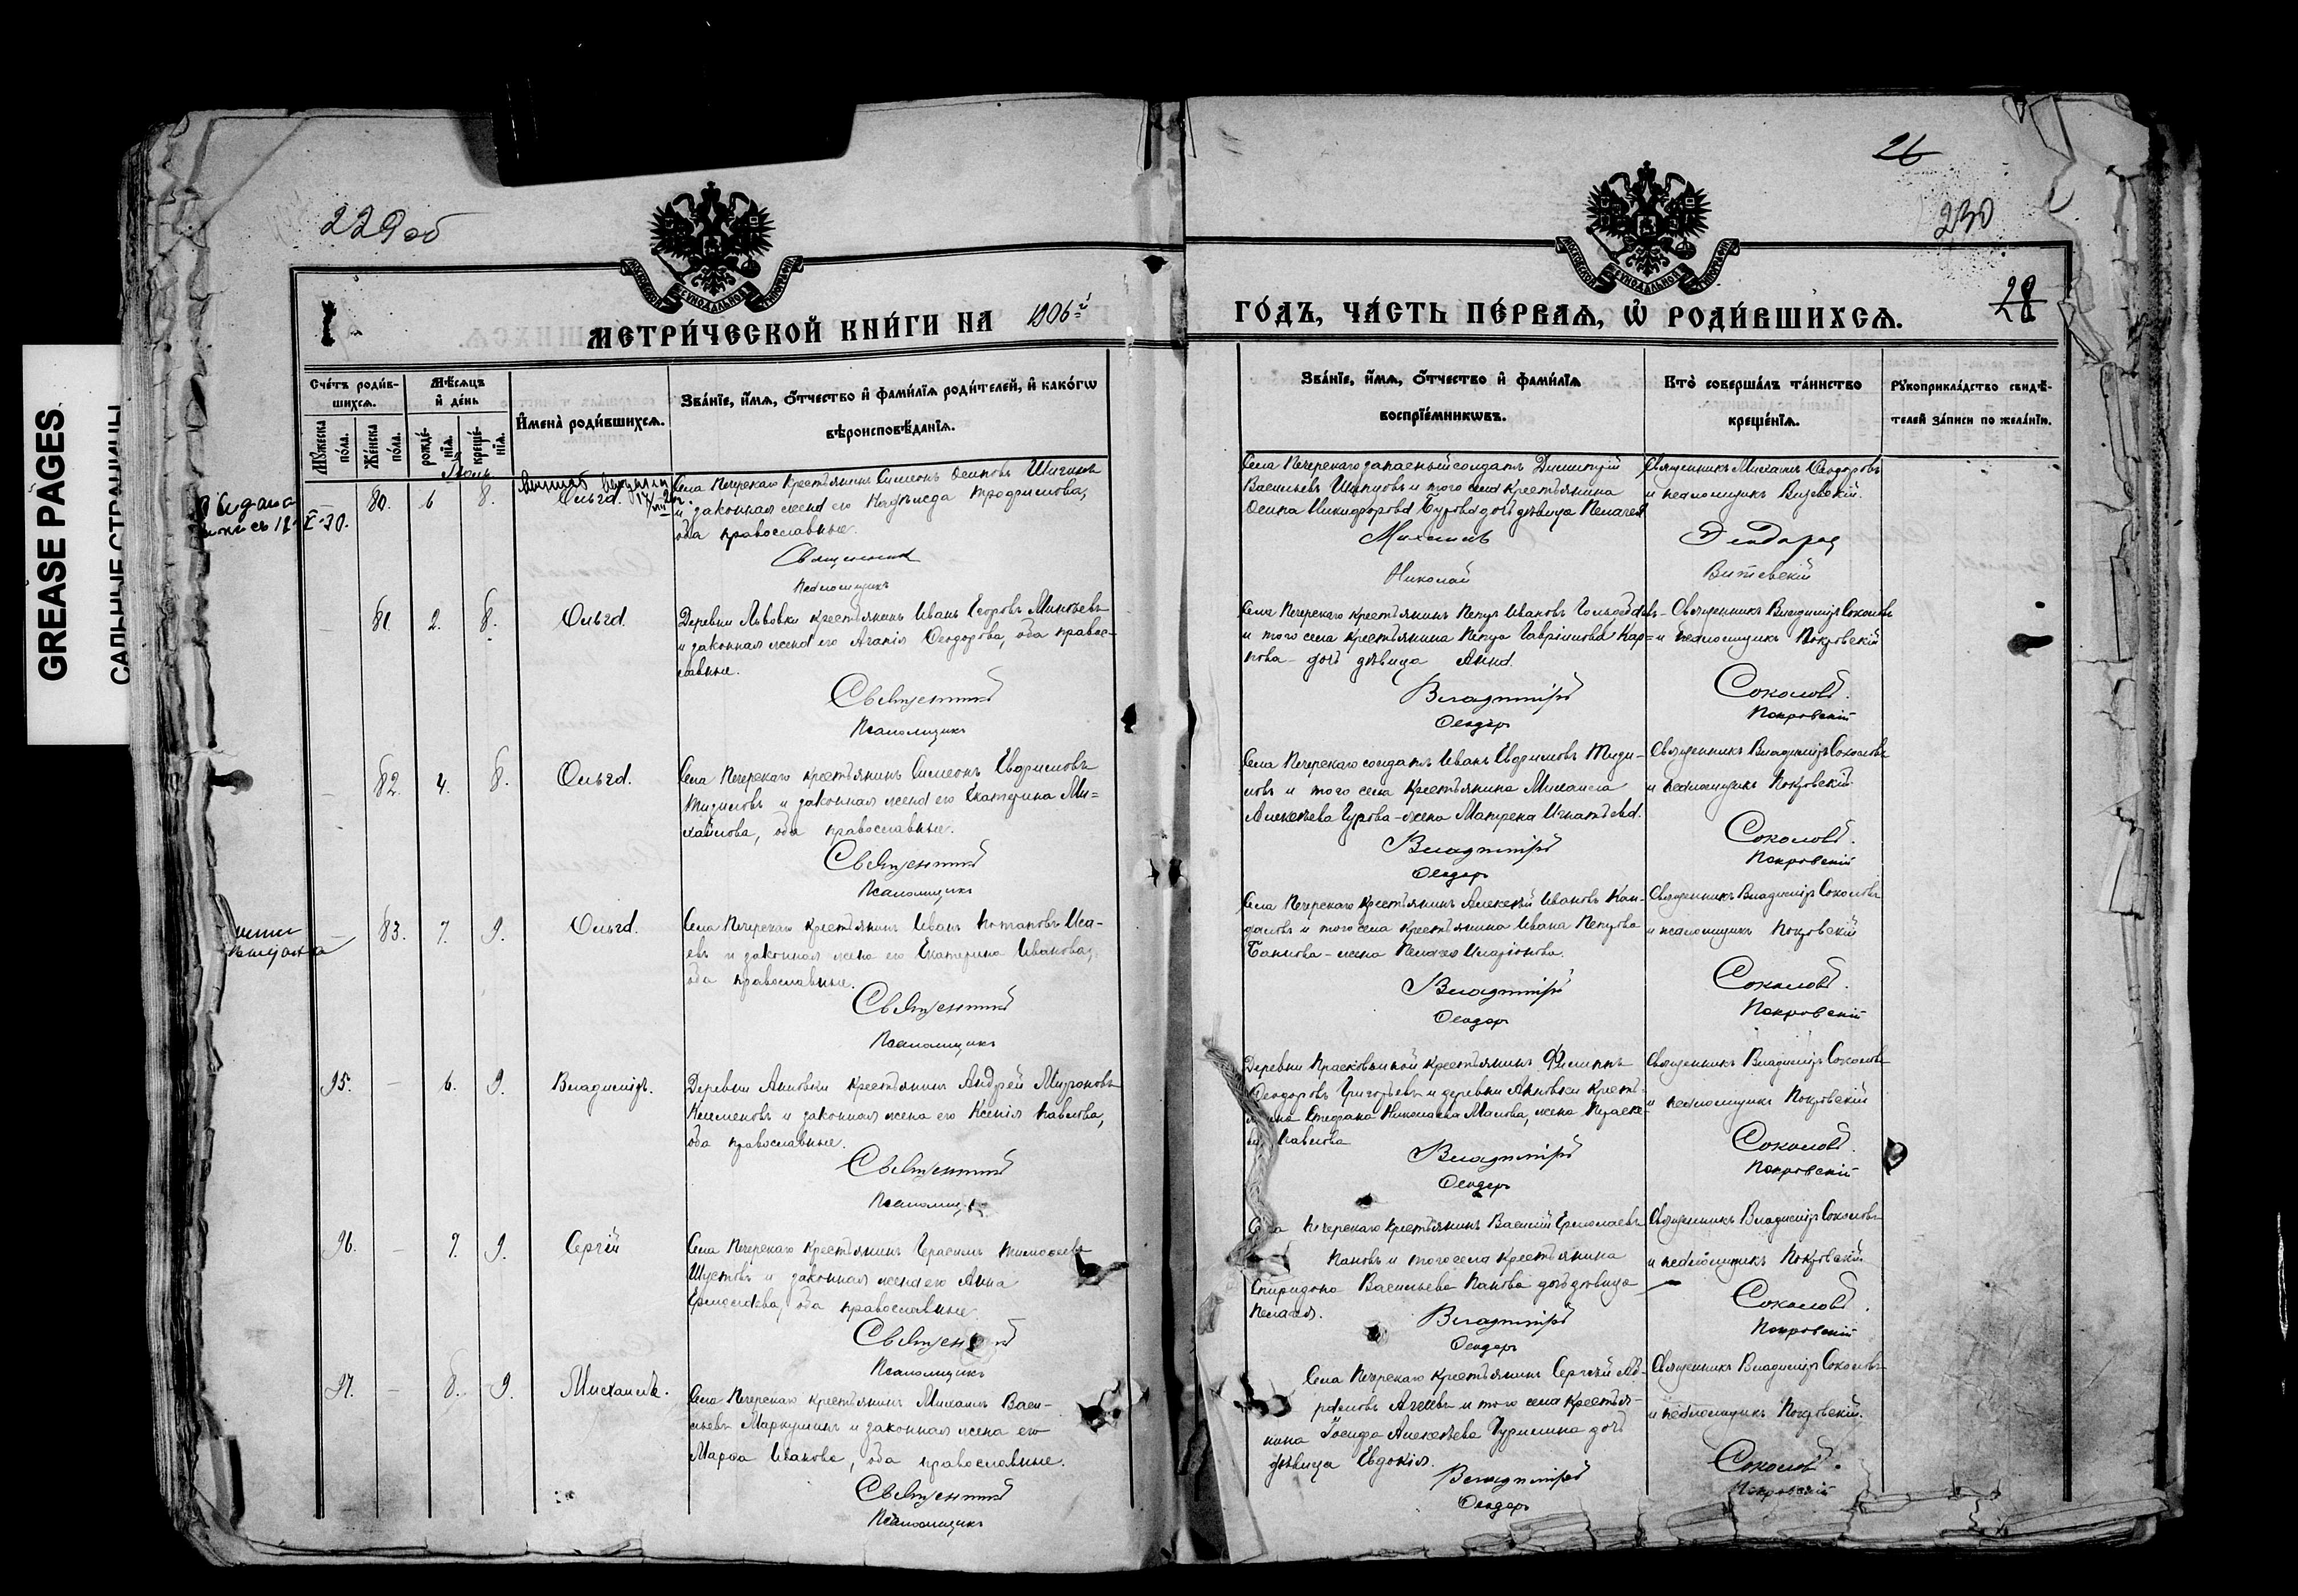 GREASE PAGES
САЛЬНЫЕ СТРАНИЦЫ
229 об
26
230
28
I.
МЕТРИ́ЧЕСКОЙ КНИ́ГИ НА 1906й
ГО́ДЪ, ЧА́СТЬ ПЕ́РВАѦ, Ѡ РОДИ́ВШИХСѦ.
Сче́тъ роди́в-
шихсѧ.
Мꙋ́жеска по́ла.
Же́нска по́ла.
Мѣ́сѧцъ и де́нь
рожде́нїѧ.
креще́нїѧ.
И҆мена̀ роди́вшихсѧ.
Зва́нїе, и҆́мѧ, ѻ҆́тчество и҆ фами́лїѧ роди́телей, и҆ како́гѡ
вѣроисповѣ́данїѧ.
Зва́нїе, и҆́мѧ, ѻ҆́тчество и҆ фами́лїѧ
воспрїе́мникѡвъ.
Кто̀ соверша́лъ та́инство
креще́нїѧ.
Рꙋкоприкла́дство свидѣ́-
телей за́писи по жела́нїю.
Іюль
80. 6 8. Ольга.
Села Печерскаго крестьянинъ Симеонъ Осиповъ Шигинъ
и законная жена его Надежда Трофимова,
оба православные.
Священникъ
Псаломщикъ
Села Печерскаго запасный солдатъ Димитрій
Васильевъ и того села крестьянина
Осипа Никифорова Бурова дочь девица Пелагея
Михаилъ
Николай
Священникъ Михаилъ Ѳеодоровъ
и псаломщикъ
Витевскій
81. 2. 8. Ольга.
Деревни Львовки крестьянинъ Иванъ Егоровъ
и законная жена его Агапія Ѳеодорова, оба правос-
лавные.
Священникъ
Псаломщикъ
Села Печерскаго крестьянинъ Петръ Ивановъ
и того села крестьянина Петра Гавріилова Кар=
пова - дочь девица Анна.
Владиміръ
Ѳеодоръ
Священникъ Владиміръ Соколовъ
и псаломщикъ Покровскій
Соколовъ.
Покровскій
82. 4. 8. Ольга.
Села Печерскаго крестьянинъ Симеонъ Евфимовъ
и законная жена его Екатерина Ми=
хайлова, оба православные.
Священникъ
Псаломщикъ
Села Печерскаго солдатъ Иванъ Евфимовъ
и того села крестьянина Михаила
Алексеева Гурова - жена Матрена Игнатьева.
Владиміръ
Ѳеодоръ
Священникъ Владиміръ Соколовъ
и псаломщикъ Покровскій
Соколовъ.
Покровскій
83. 7. 9. Ольга.
Села Печерскаго крестьянинъ Иванъ Потаповъ Иса-
евъ и законная жена его Екатерина Иванова,
оба православные.
Священникъ
Псаломщикъ
Села Печерскаго крестьянинъ Алексей Ивановъ Кон-
и того села крестьянина Ивана Петрова
жена Пелагея Иларіонова.
Владиміръ
Ѳеодоръ
Священникъ Владиміръ Соколовъ
и псаломщикъ Покровскій
Соколовъ.
Покровскій
95. - 6. 9. Владиміръ.
Деревни Анновки крестьянинъ Андрей Мироновъ
Клеменовъ и законная жена его Ксенія Павлова,
оба православные.
Священникъ
Псаломщикъ
крестьянинъ Филиппъ
Ѳеодоровъ Григорьевъ и деревни Анновки кресть-
янина Стефана Николаева Малова, жена Параске-
ва Павлова
Владиміръ
Ѳеодоръ
Священникъ Владиміръ Соколовъ
и псаломщикъ Покровскій
Соколовъ.
Покровскій
96. - 7. 9. Сергій
Села Печерскаго крестьянинъ Герасимъ Тимоѳеевъ
Шустовъ и законная жена его Анна
Ермолаева, оба православные
Священникъ
Псаломщикъ
Села Печерскаго крестьянинъ Василій Ермолаевъ
Пановъ и того села крестьянина
Спиридона Васильева Панова дочь девица
Пелагея.
Владиміръ
Ѳеодоръ
Священникъ Владиміръ Соколовъ
и псаломщикъ Покровскій
Соколовъ.
Покровскій
97. - 8. 9. Михаилъ.
Села Печерскаго крестьянинъ Михаилъ Васи-
льевъ Маркушинъ и законная жена его
Марѳа Иванова, оба православные.
Священникъ
Псаломщикъ
Села Печерскаго крестьянинъ Сергей Аб-
рамовъ и того села крестья-
нина Іосифа Алексеева дочь
девица Евдокія.
Владиміръ
Ѳеодоръ
Священникъ Владиміръ Соколовъ
и псаломщикъ Покровскій.
Соколовъ.
Покровскій